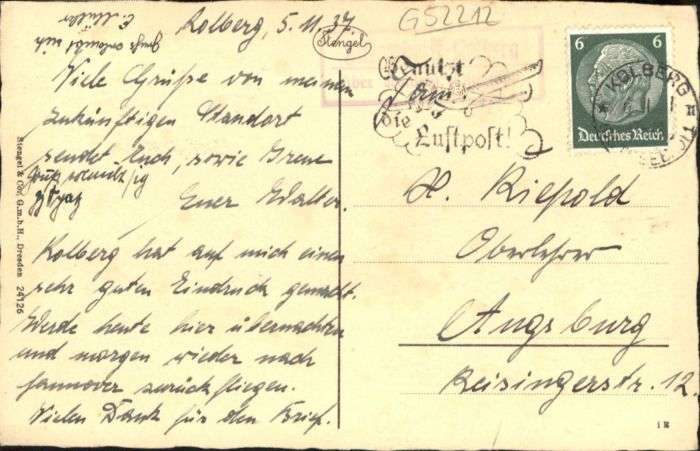 Kolberg, 5.11.37
Viele Grüße von meinem
zukünftigen Standort
sendet Euch, sowie Grete
Euer Walter.
Kolberg hat auf mich einen
sehr guten Eindruck gemacht.
Werde heute hier übernachten
und morgen wieder nach
Hannover zurückfliegen.
Vielen Dank für den Brief.
Stengel & Co., G.m.b.H., Dresden 24126
Stengel
G52212
Benutzt
die
Luftpost!
6 6
Deutsches Reich
KOLBERG
H. Riepold
Oberlehrer
Augsburg
Reisingerstr. 12.
1 R